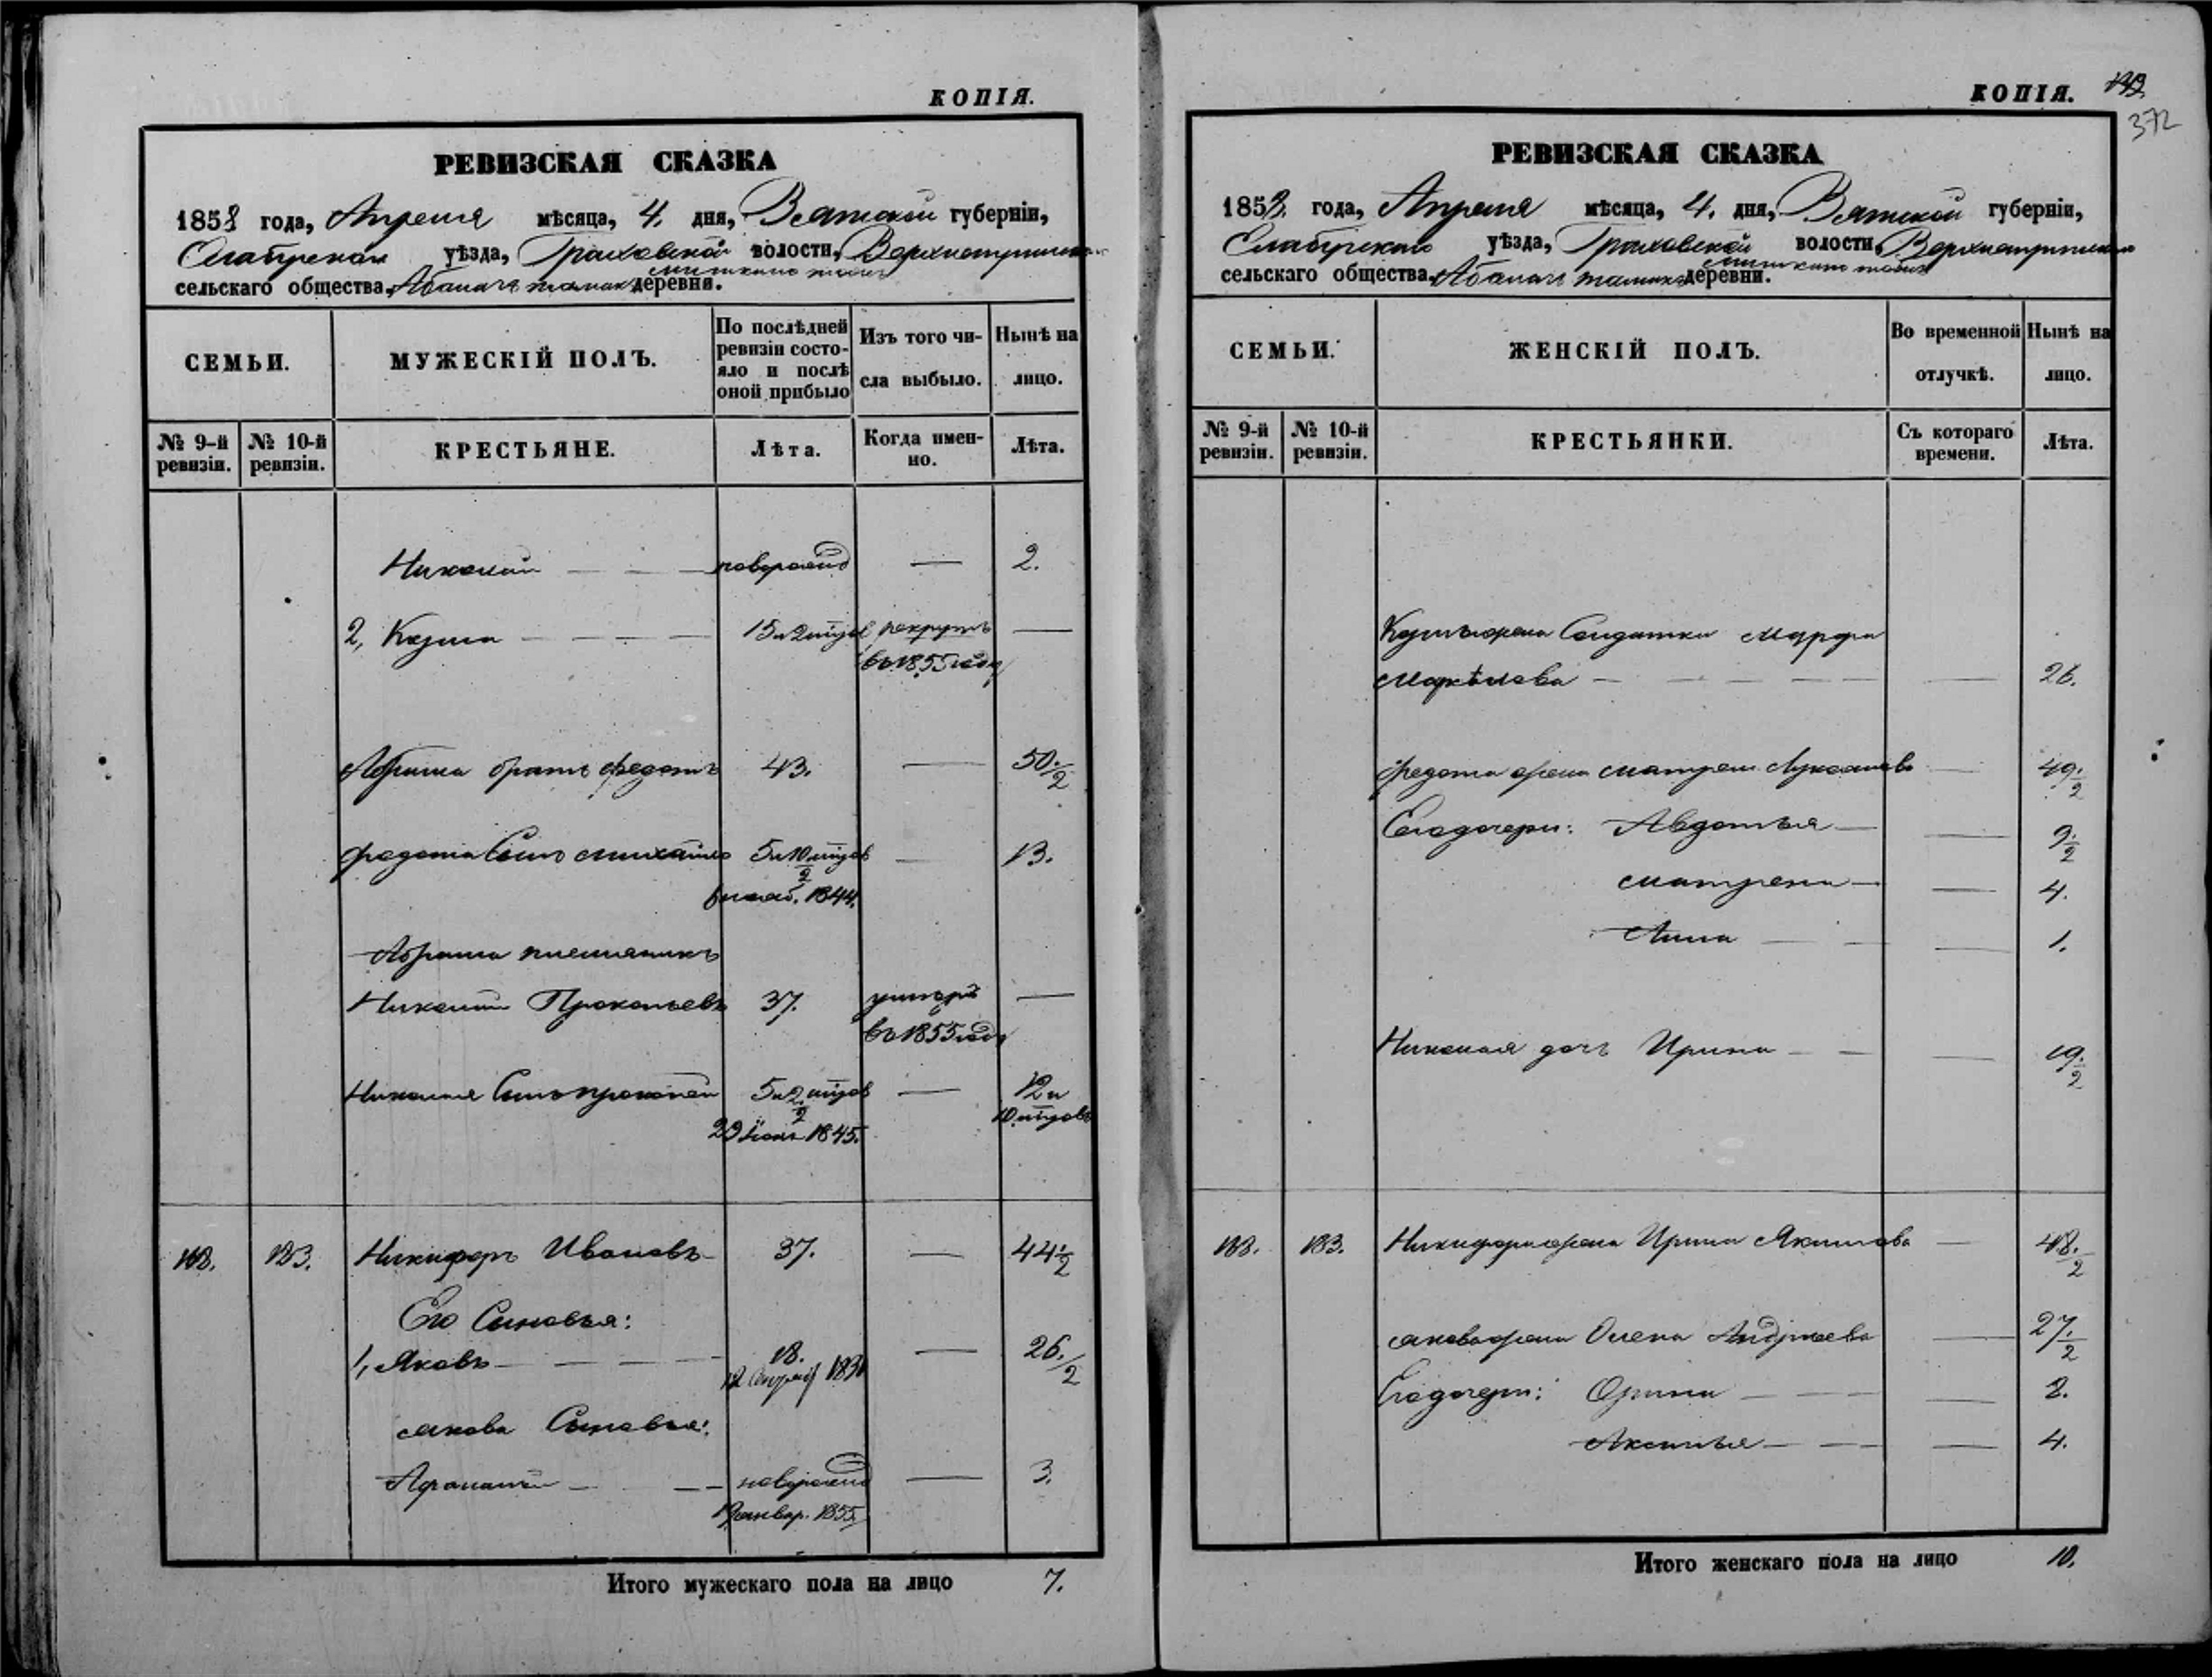 КОПІЯ.
РЕВИЗСКАЯ СКАЗКА
1858 года, Апреля мѣсяца, 4. дня, Вятской губерніи,
Елабужскаго уѣзда, Граховской волости,
сельскаго общества, деревни.
СЕМЬИ.
МУЖЕСКІЙ ПОЛЪ.
По послѣдней
ревизіи состо-
яло и послѣ
оной прибыло
Изъ того чи-
сла выбыло.
Нынѣ на
лицо.
№ 9-й
ревизіи.
№ 10-й
ревизіи.
КРЕСТЬЯНЕ.
Лѣта.
Когда имен-
но.
Лѣта.
Николай — — новорожд — 2.
2, Кузма — — — — рекрутъ —
въ 1855 году
Абрама братъ Федотъ 43. — 50 1/2
Федота Сынъ Михайло — 13.
1844.
Абрама племянникъ
Николай Прокопьевъ 37. умеръ —
въ 1855 году
Николая Сынъ Прокопей — 12 и
1845.
168. 183. Никифоръ Ивановъ 37. — 44 1/2
Его Сыновья:
1, Яковъ — — — — 18. — 26 1/2
Якова Сыновья:
Афанасій — — новорожд — 3.
январ. 1855
Итого мужескаго пола на лицо 7.
КОПІЯ.
372
РЕВИЗСКАЯ СКАЗКА
1858. года, Апреля мѣсяца, 4. дня, Вятской губерніи,
Елабужскаго уѣзда, Граховской волости
сельскаго общества, деревни.
СЕМЬИ.
ЖЕНСКІЙ ПОЛЪ.
Во временной
отлучкѣ.
Нынѣ на
лицо.
№ 9-й
ревизіи.
№ 10-й
ревизіи.
КРЕСТЬЯНКИ.
Съ котораго
времени.
Лѣта.
Кузмы жена Солдатка Марфа
— — — — — — 26.
Федота жена Матрена — 49 1/2
Его дочери: Авдотья — — 9 1/2
Матрена — — 4.
Анна — — — 1.
Николая дочь Ирина — — — 19 1/2
168. 183. Никифора жена Ирина Якимова — 48 1/2
Якова жена Олена Андреева — 27 1/2
Его дочери: Орина — — — 8.
Аксинья — — — — 4.
Итого женскаго пола на лицо 10.